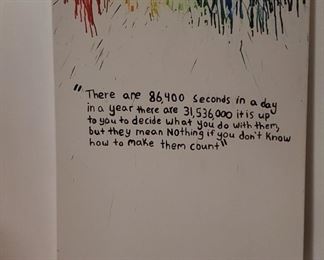 "There are 86,400 seconds in a day
in a year there are 31,536,000 it is up
to you to decide what you do with them,
but they mean NOthing if you don't know
how to make them count"